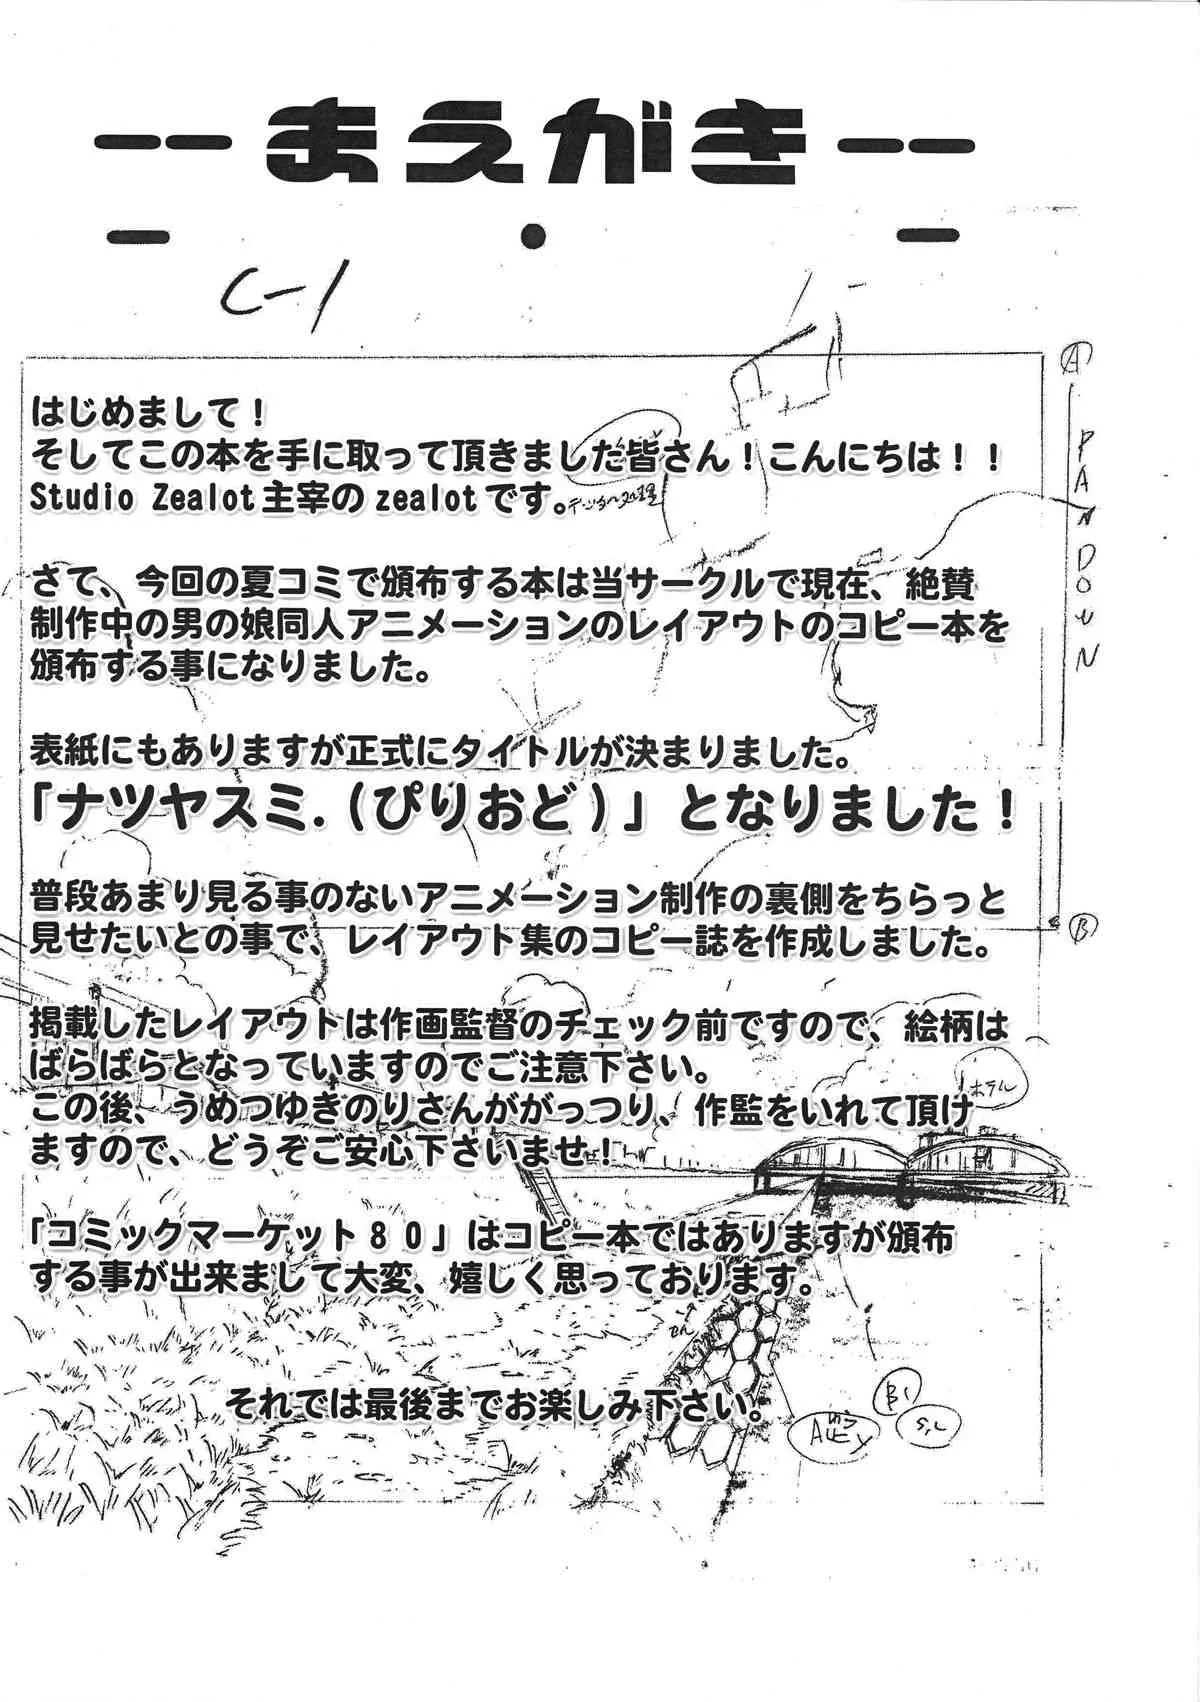 -- まえがき --
C-1
はじめまして！
そしてこの本を手に取って頂きました皆さん！こんにちは！！
Studio Zealot主宰のzealotです。
さて、今回の夏コミで頒布する本は当サークルで現在、絶賛
制作中の男の娘同人アニメーションのレイアウトのコピー本を
頒布する事になりました。
表紙にもありますが正式にタイトルが決まりました。
「ナツヤスミ.(ぴりおど)」となりました！
普段あまり見る事のないアニメーション制作の裏側をちらっと
見せたいとの事で、レイアウト集のコピー誌を作成しました。
掲載したレイアウトは作画監督のチェック前ですので、絵柄は
ばらばらとなっていますのでご注意下さい。
この後、うめつゆきのりさんががっつり、作監をいれて頂け
ますので、どうぞご安心下さいませ！
「コミックマーケット８０」はコピー本ではありますが頒布
する事が出来まして大変、嬉しく思っております。
それでは最後までお楽しみ下さい。
A
PAN DOWN
B
ホテル